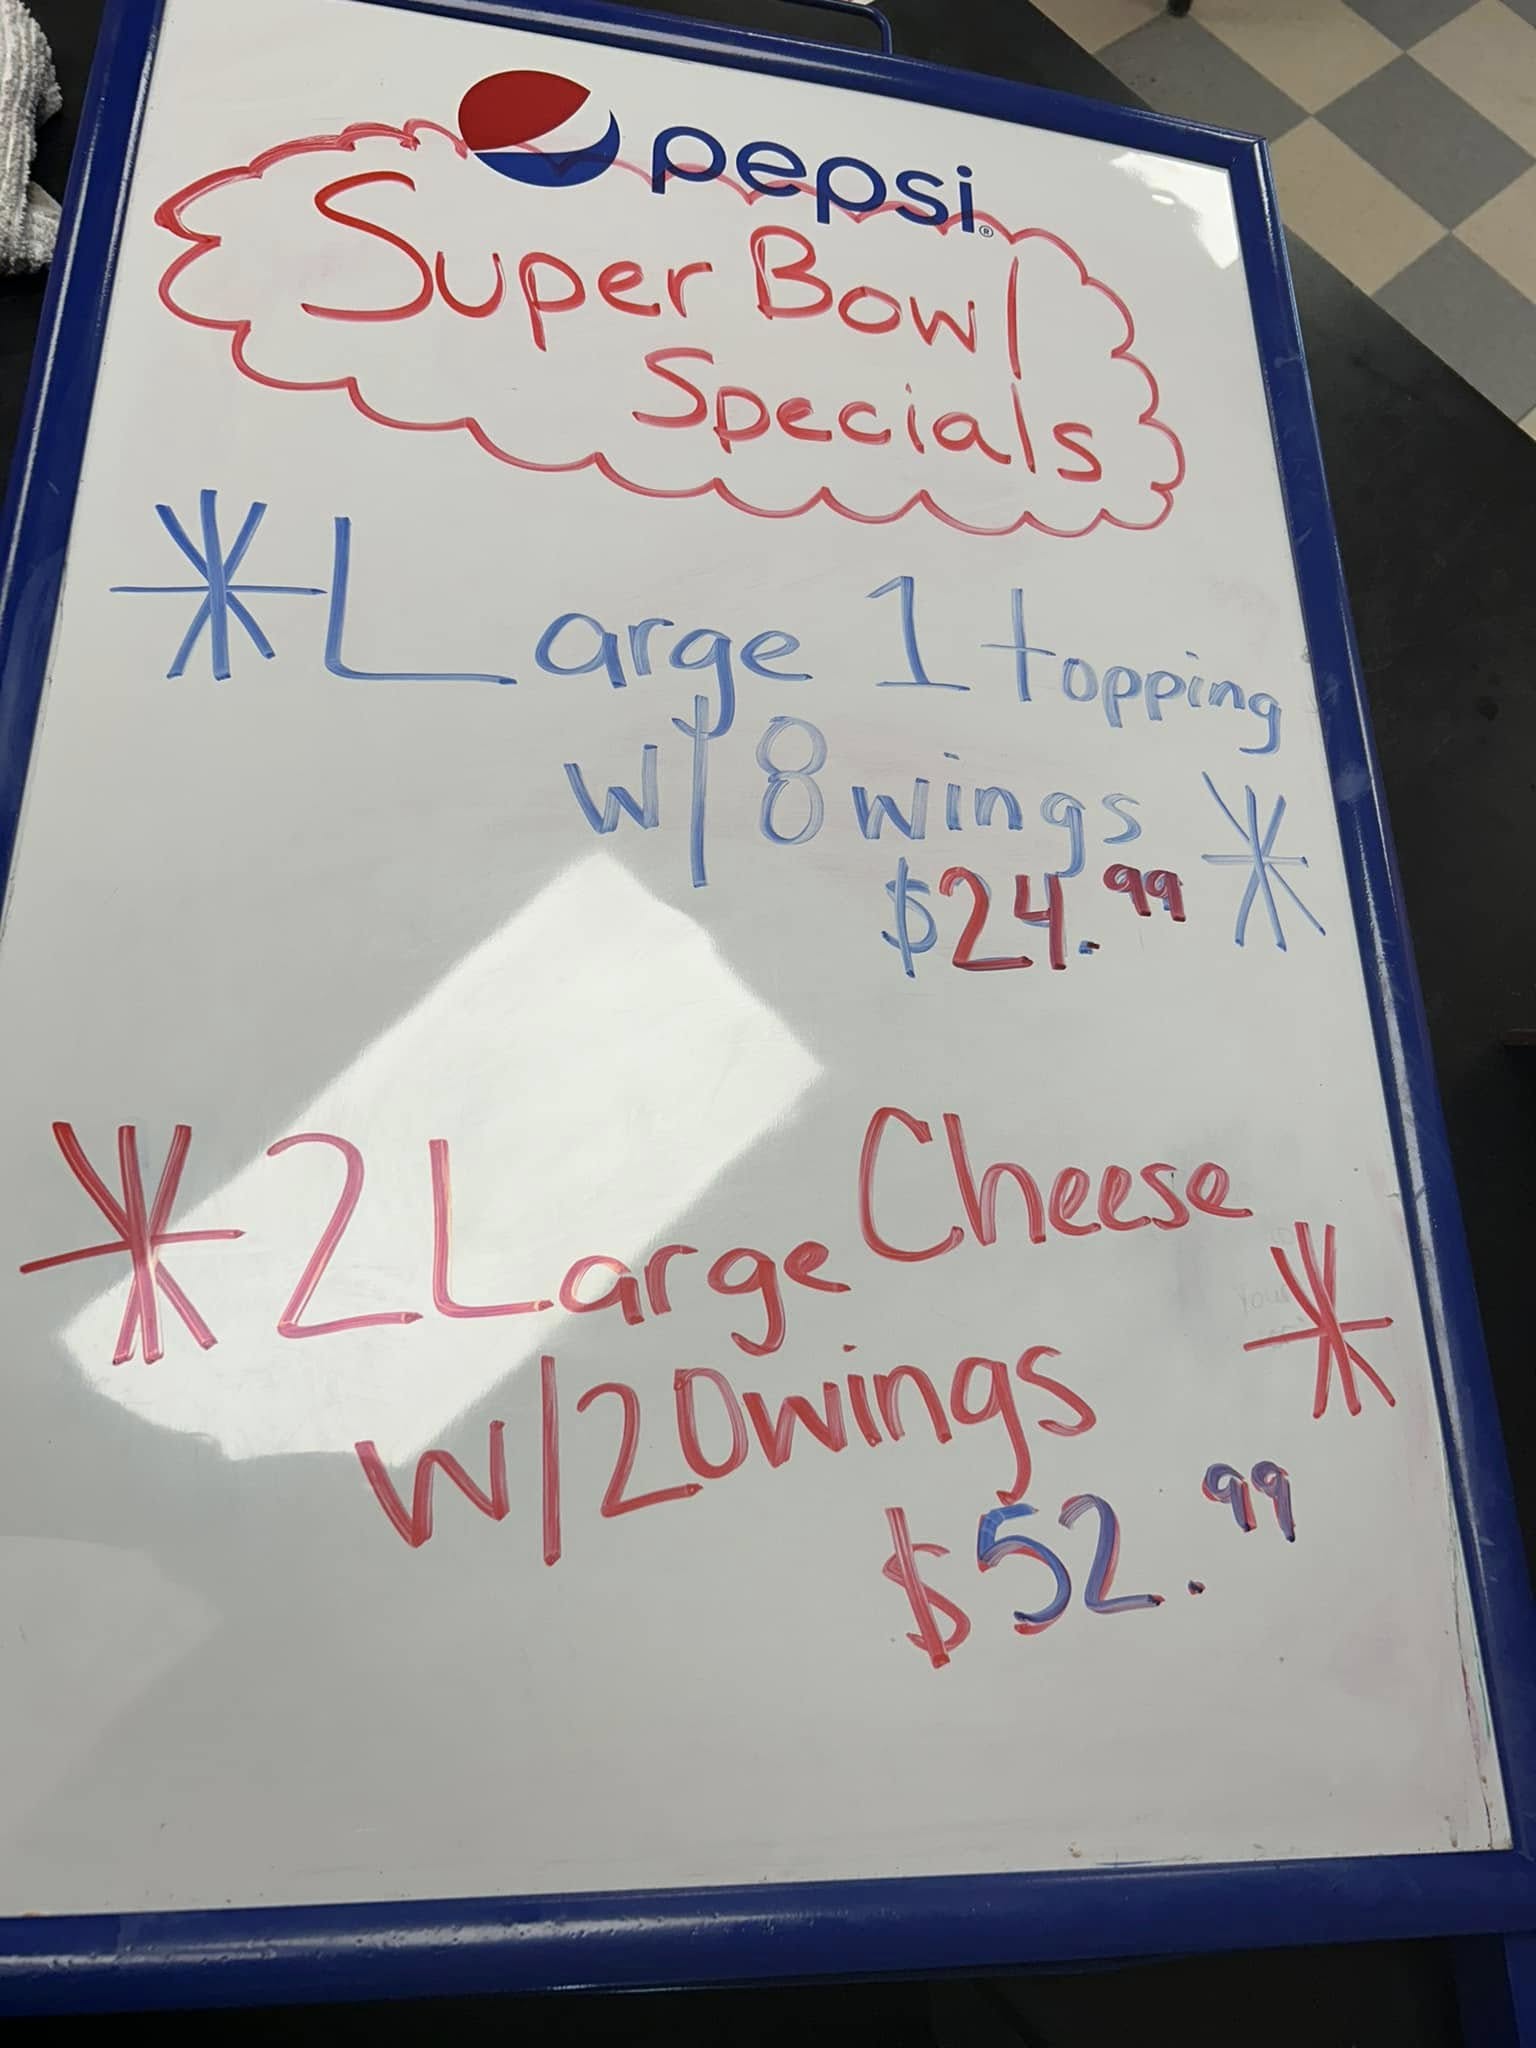 pepsi®
Super Bowl
Specials
* Large 1 topping
w/ 8 wings *
$24.99
* 2 Large Cheese *
w/20wings
$52.99